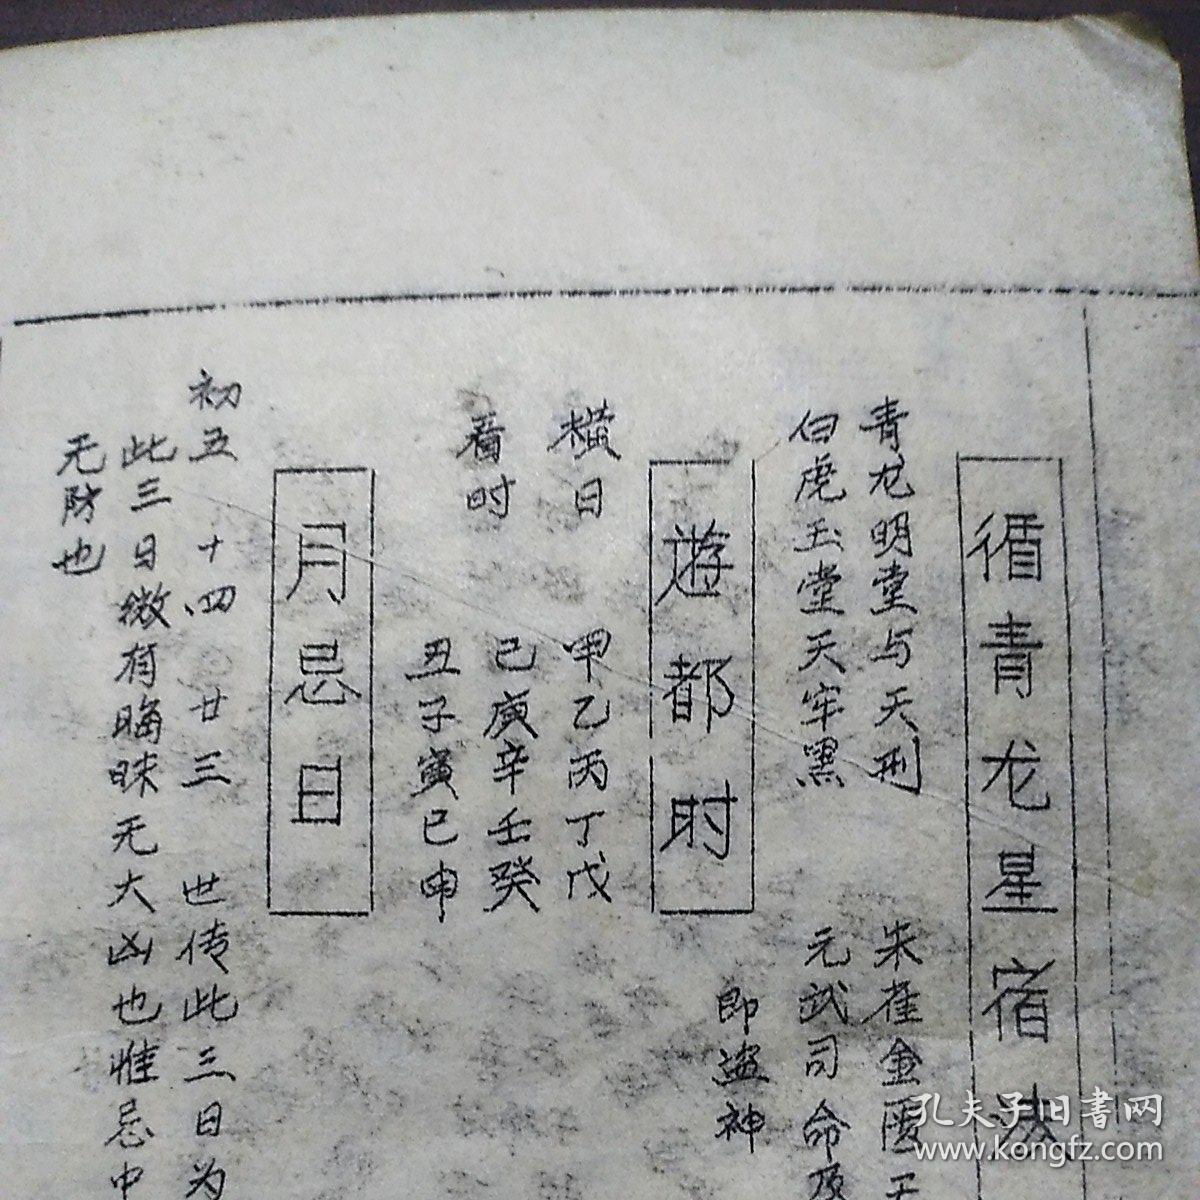 循青龙星宿法
青龙明堂与天刑 朱雀金匮天
白虎玉堂天牢黑 元武司命及
遊都时 即盗神
横日 甲乙丙丁戊
己庚辛壬癸
看时 丑子寅巳申
月忌日
初五 十四 廿三 世传此三日为
此三日微有晦昧无大凶也惟忌中
无防也
孔夫子旧書网
www.kongfz.com